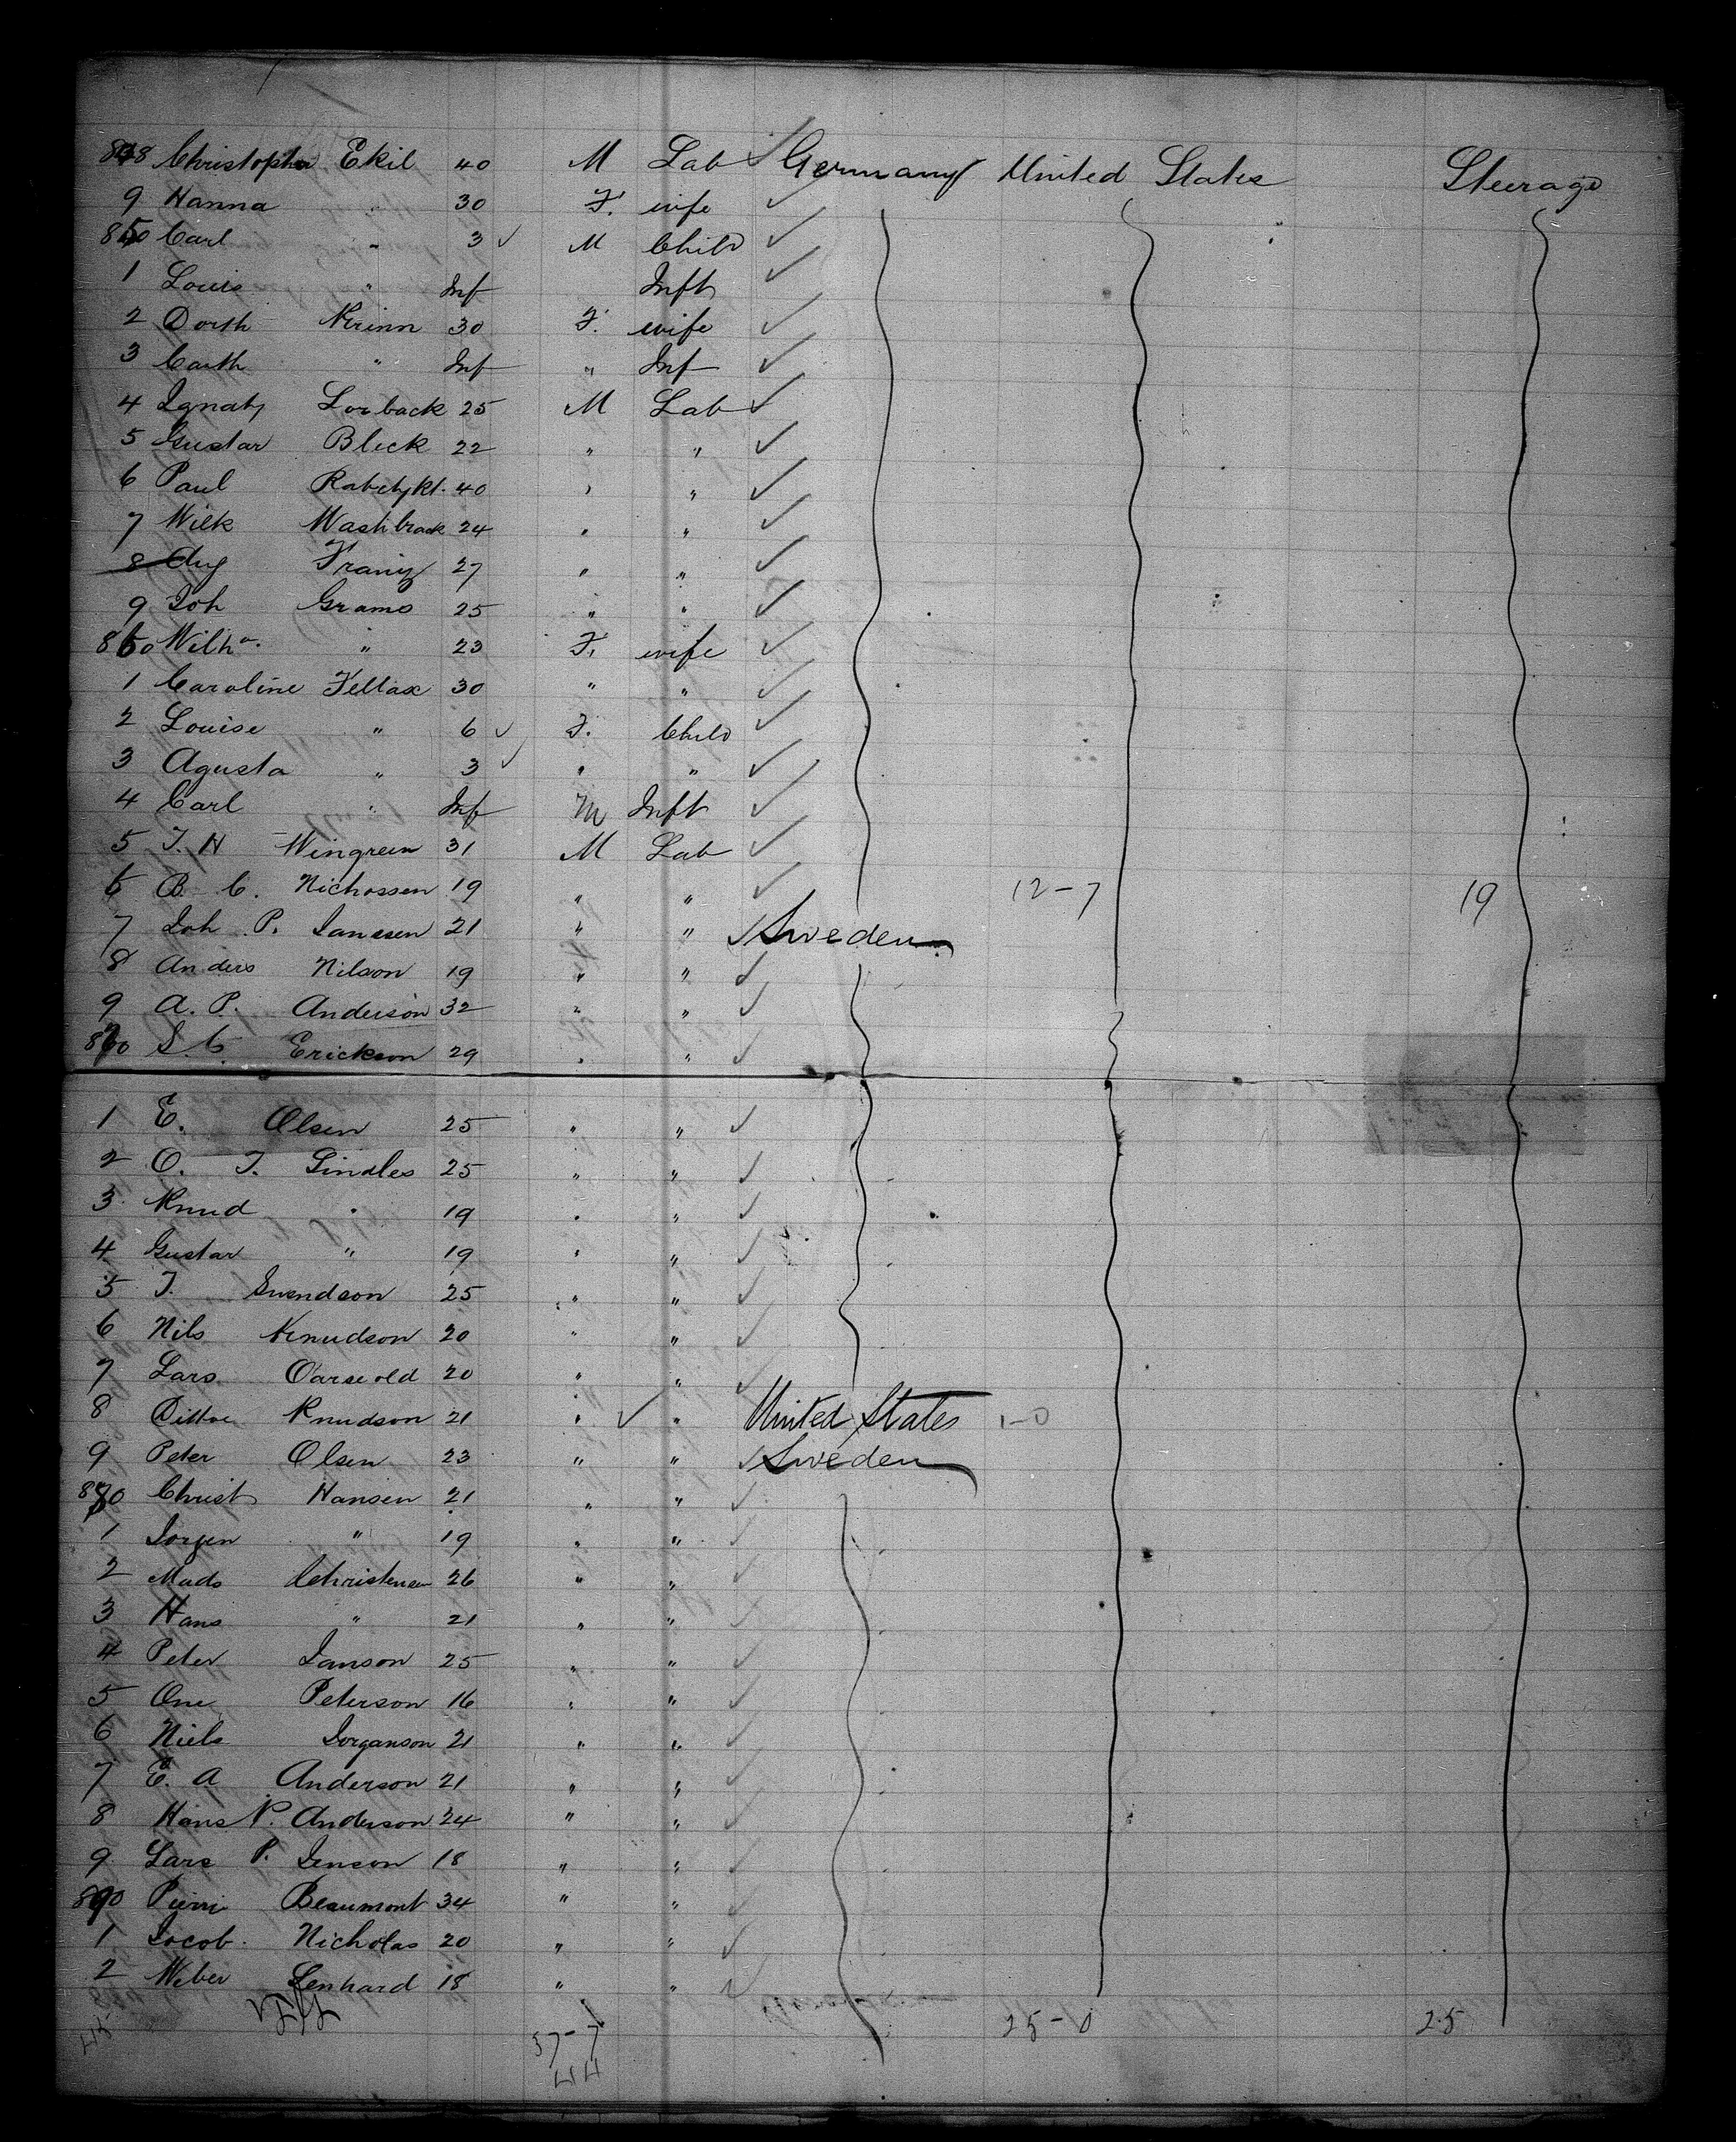 848 Christopher Ekil 40 M Lab ✓ Germany United States Steerage
9 Hanna " 30 F. wife ✓
850 Carl " 3 ✓ M Child ✓
1 Louis " Inf Inft ✓
2 Dorth Krinn 30 F. wife ✓
3 Cath " Inf " Inf ✓
4 Ignatz Lorback 25 M Lab ✓
5 Gustav Bleck 22 " " ✓
6 Paul 40 " " ✓
7 Wilk Washbrack 24 " " ✓
8 Aug Franz 27 " " ✓
9 Joh Grams 25 " " ✓
860 Wilha. " 23 F. wife ✓
1 Caroline Fellax 30 " " ✓
2 Louise " 6 ✓ F. Child ✓
3 Agusta " 3 ✓ " " ✓
4 Carl " Inf M Inft ✓
5 J. H Wingreen 31 M Lab ✓
6 B. C. Nichossen 19 " " ✓ 12-7 19
7 Joh P. Janssen 21 " " ✓ Sweden
8 Anders Nilson 19 " " ✓
9 A. P. Anderson 32 " " ✓
870 S. C. Erickson 29 " " ✓
1 E. Olsen 25 " " ✓
2 O. T. Lindles 25 " " ✓
3 Knud " 19 " " ✓
4 Gustav " 19 " " ✓
5 T. Svendson 25 " " ✓
6 Nils Knudson 20 " " ✓
7 Lars 20 " " ✓
8 Knudson 21 " ✓ " United States 1-0
9 Peter Olsen 23 " " ✓ Sweden
880 Christ Hansen 21 " " ✓
1 Jorgen " 19 " " ✓
2 Mads Christensen 26 " " ✓
3 Hans " 21 " " ✓
4 Peter Janson 25 " " ✓
5 One Peterson 16 " " ✓
6 Niels Jorganson 21 " " ✓
7 E. A Anderson 21 " " ✓
8 Hans P. Anderson 24 " " ✓
9 Lars P. Jenson 18 " " ✓
890 Pierri Beaumont 34 " " ✓
1 Jacob Nicholas 20 " " ✓
2 Weber Lenhard 18 " " ✓
37-7 25-0 25
44